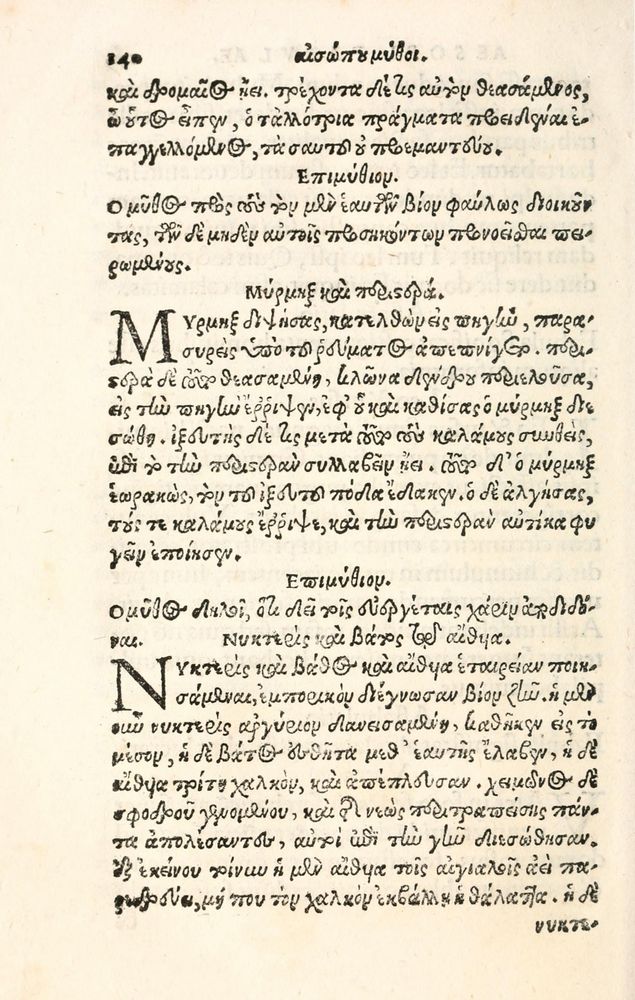 140 αἰσώπου μῦθοι.
καὶ δρομαῖος ᾔει. τρέχοντα δέ τις αὐτὸν θεασάμενος,
ὦ οὗτος εἶπεν, ὁ τἀλλότρια πράγματα προειδέναι ἐ-
παγγελλόμενος, τὰ σαυτοῦ οὐ προεμαντεύου.
Επιμύθιον.
Ο μῦθος πρὸς τοὺς τὸν μὲν ἑαυτῶν βίον φαύλως διοικοῦν
τας, τῶν δὲ μηδὲν αὐτοῖς προσηκόντων προνοεῖσθαι πει-
ρωμένους.
Μύρμηξ καὶ περιστερά.
ΜΥρμηξ διψήσας, κατελθὼν εἰς πηγὴν, παρα-
συρεὶς ὑπὸ τοῦ ῥεύματος ἀπεπνίγετο. περι-
στερὰ δὲ τοῦτο θεασαμένη, κλῶνα δένδρου περιελοῦσα,
εἰς τὴν πηγὴν ἔρριψεν, ἐφ' οὗ καὶ καθίσας ὁ μύρμηξ διε
σώθη. ἰξευτὴς δέ τις μετὰ τοῦτο τοὺς καλάμους συνθεὶς,
ἐπὶ τὸ τὴν περιστερὰν συλλαβεῖν ᾔει. τοῦτο δ' ὁ μύρμηξ
ἑωρακὼς, τὸν τοῦ ἰξευτοῦ πόδα ἔδακεν. ὁ δὲ ἀλγήσας,
τούς τε καλάμους ἔρριψε, καὶ τὴν περιστερὰν αὐτίκα φυ
γεῖν ἐποίησεν.
Επιμύθιον.
Ο μῦθος δηλοῖ, ὅτι δεῖ τοῖς εὐεργέταις χάριν ἀποδιδό-
ναι. Νυκτερὶς καὶ Βάτος καὶ αἴθυια.
ΝΥκτερὶς καὶ Βάτος καὶ αἴθυια ἑταιρείαν ποιη-
σάμεναι, ἐμπορικὸν διέγνωσαν βίον ζῆν. ἡ μὲν
οὖν νυκτερὶς ἀργύριον δανεισαμένη, καθῆκεν εἰς τὸ
μέσον, ἡ δὲ βάτος ἐσθῆτα μεθ' ἑαυτῆς ἔλαβεν, ἡ δὲ
αἴθυια τρίτη χαλκὸν, καὶ ἀπέπλευσαν. χειμῶνος δὲ
σφοδροῦ γενομένου, καὶ τῆς νεὼς περιτραπείσης πάν-
τα ἀπολέσαντες, αὐτοὶ ἐπὶ τὴν γῆν διεσώθησαν.
ἐξ ἐκείνου τοίνυν ἡ μὲν αἴθυια τοῖς αἰγιαλοῖς ἀεὶ πα-
ρεδρεύει, μή που τὸν χαλκὸν ἐκβάλλῃ ἡ θάλαττα. ἡ δὲ
νυκτε-